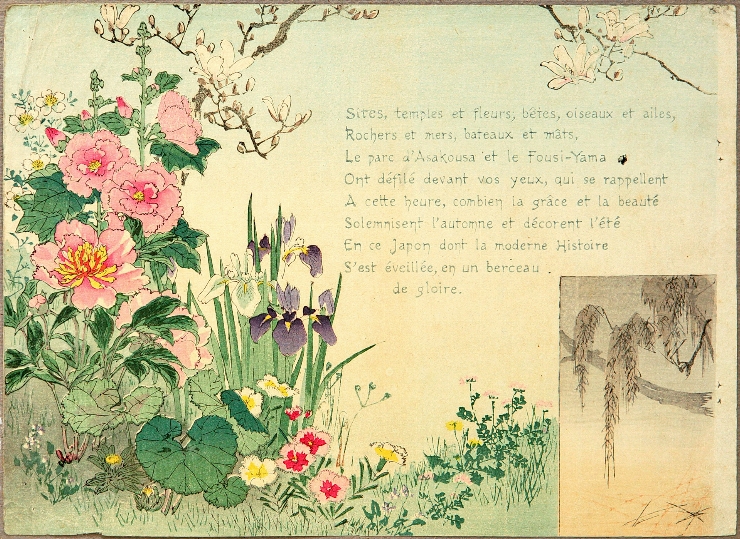 Sites, temples et fleurs; bêtes, oiseaux et ailes,
Rochers et mers, bateaux et mâts,
Le parc d'Asakousa et le Fousi-Yama
Ont défilé devant vos yeux, qui se rappellent
A cette heure, combien la grâce et la beauté
Solemnisent l'automne et décorent l'été
En ce Japon dont la moderne Histoire
S'est éveillée, en un berceau
de gloire.